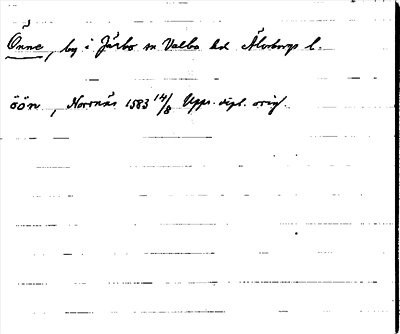 Önne, by i Järbo sn Valbo hd Älvsborgs l.
öön, Nornäs 1583 14/8 Upps. dipl. orig.